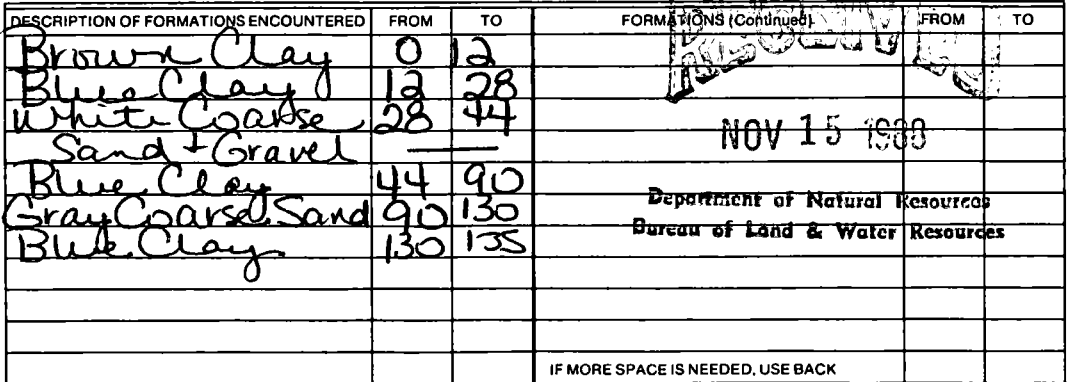 DESCRIPTION OF FORMATIONS ENCOUNTERED FROM TO FORMATIONS (Continued) FROM TO
Brown Clay 0 12
Blue Clay 12 28
White Coarse 28 44
Sand + Gravel
Blue Clay 44 90
Gray Coarse Sand 90 130
Blue Clay 130 135
NOV 15
Department of Natural Resources
Bureau of Land & Water Resources
IF MORE SPACE IS NEEDED, USE BACK